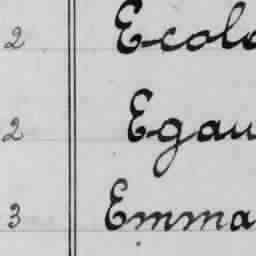 2 Ecole
2 Egau
3 Emma